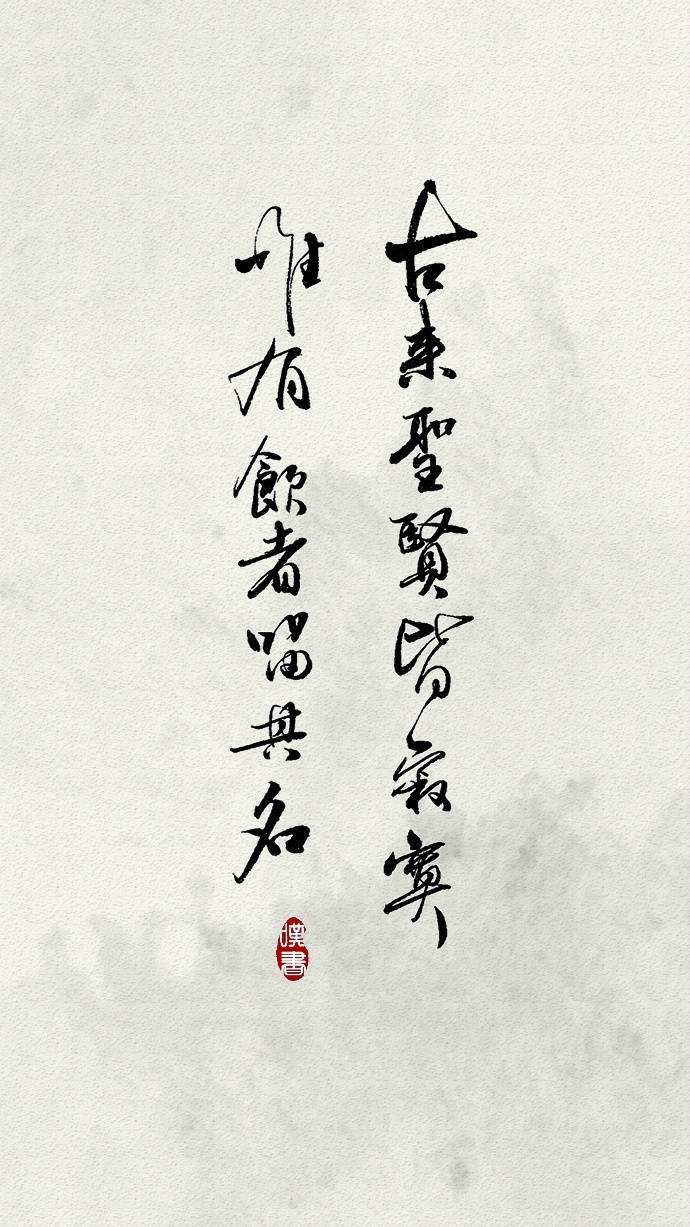 古来聖賢皆寂寞
唯有飲者留其名
嘆書